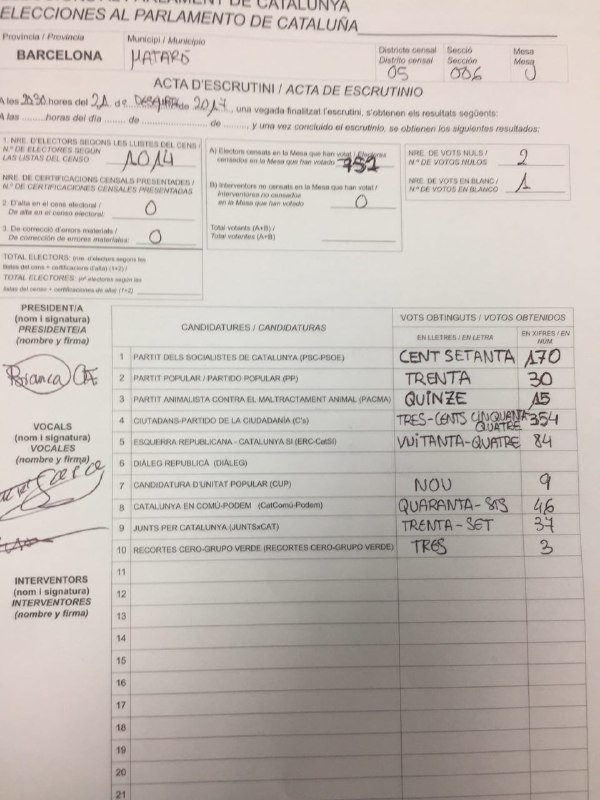 ELECCIONES AL PARLAMENTO DE CATALUÑA
Província / Provincia
BARCELONA
Municipi / Municipio
MATARÓ
Districte censal
Distrito censal
05
Secció
Sección
006
Mesa
Mesa
U
ACTA D'ESCRUTINI / ACTA DE ESCRUTINIO
A les 20:30 hores del 21 de DESEMBRE de 2017, una vegada finalitzat l'escrutini, s'obtenen els resultats següents:
A las ......... horas del día ......... de ......................... de ........., y una vez concluido el escrutinio, se obtienen los siguientes resultados:
1. NRE. D'ELECTORS SEGONS LES LLISTES DEL CENS /
N.º DE ELECTORES SEGÚN
LAS LISTAS DEL CENSO
1014
NRE. DE CERTIFICACIONS CENSALS PRESENTADES /
N.º DE CERTIFICACIONES CENSALES PRESENTADAS
2. D'alta en el cens electoral /
De alta en el censo electoral:
0
3. De correcció d'errors materials /
De corrección de errores materiales:
0
TOTAL ELECTORS: (nre. d'electors segons les
llistes del cens + certificacions d'alta) (1+2) /
TOTAL ELECTORES: (nº electores según las
listas del censo + certificaciones de alta) (1+2)
A) Electors censats en la Mesa que han votat / Electores
censados en la Mesa que han votado
B) Interventors no censats en la Mesa que han votat /
Interventores no censados
en la Mesa que han votado
0
Total votants (A+B) /
Total votantes (A+B)
NRE. DE VOTS NULS /
N.º DE VOTOS NULOS
2
NRE. DE VOTS EN BLANC /
N.º DE VOTOS EN BLANCO
1
PRESIDENT/A
(nom i signatura)
PRESIDENTE/A
(nombre y firma)
Bianca
VOCALS
(nom i signatura)
VOCALES
(nombre y firma)
INTERVENTORS
(nom i signatura)
INTERVENTORES
(nombre y firma)
CANDIDATURES / CANDIDATURAS
VOTS OBTINGUTS / VOTOS OBTENIDOS
EN LLETRES / EN LETRA
EN XIFRES / EN NÚM.
1 PARTIT DELS SOCIALISTES DE CATALUNYA (PSC-PSOE) CENT SETANTA 170
2 PARTIT POPULAR / PARTIDO POPULAR (PP) TRENTA 30
3 PARTIT ANIMALISTA CONTRA EL MALTRACTAMENT ANIMAL (PACMA) QUINZE 15
4 CIUTADANS-PARTIDO DE LA CIUDADANÍA (C's) TRES-CENTS CINQUANTA QUATRE 354
5 ESQUERRA REPUBLICANA - CATALUNYA SÍ (ERC-CatSí) VUITANTA-QUATRE 84
6 DIÀLEG REPUBLICÀ (DIÀLEG)
7 CANDIDATURA D'UNITAT POPULAR (CUP) NOU 9
8 CATALUNYA EN COMÚ-PODEM (CatComú-Podem) QUARANTA-SIS 46
9 JUNTS PER CATALUNYA (JUNTSxCAT) TRENTA-SET 37
10 RECORTES CERO-GRUPO VERDE (RECORTES CERO-GRUPO VERDE) TRES 3
11
12
13
14
15
16
17
18
19
20
21